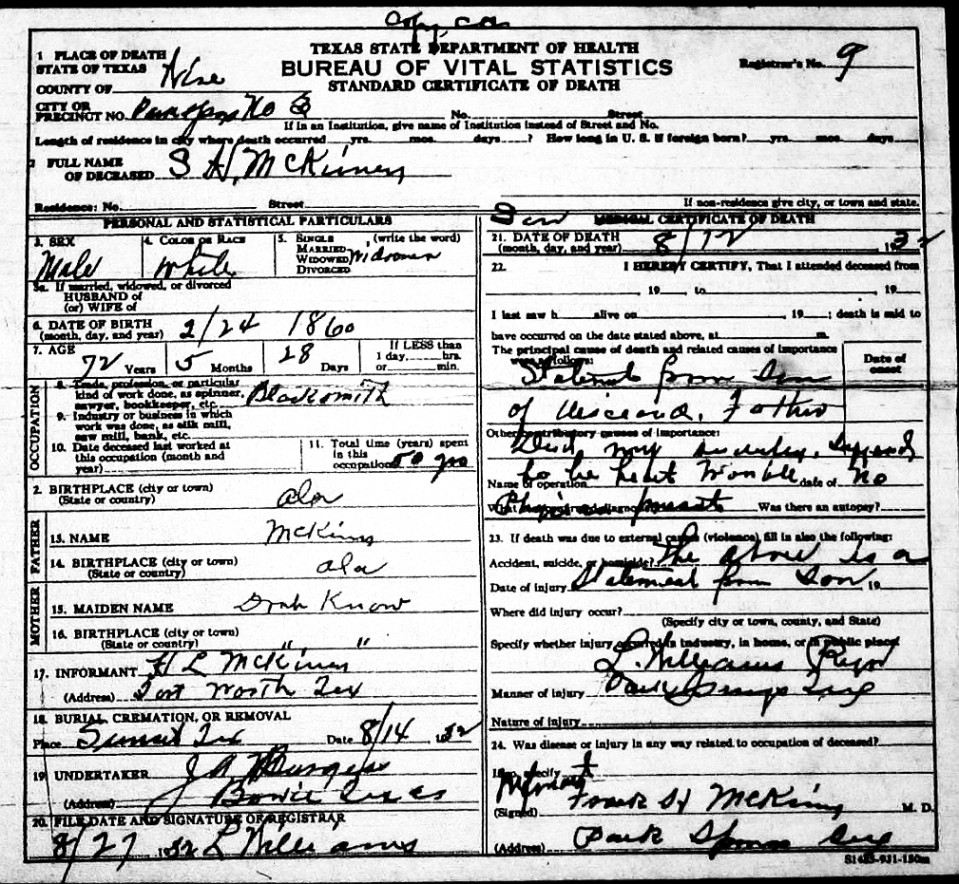 Copy
TEXAS STATE DEPARTMENT OF HEALTH
BUREAU OF VITAL STATISTICS
STANDARD CERTIFICATE OF DEATH
Registrar's No. 9
1 PLACE OF DEATH
STATE OF TEXAS
COUNTY OF Wise
CITY OR
PRECINCT NO. No No. Street
If in an Institution, give name of Institution instead of Street and No.
Length of residence in city where death occurred yrs. mos. days ? How long in U. S. if foreign born? yrs. mos. days
2 FULL NAME
OF DECEASED S H McKinney
Residence: No. Street
If non-residence give city, or town and state.
PERSONAL AND STATISTICAL PARTICULARS
3. SEX
Male
4. COLOR OR RACE
White
5. SINGLE
MARRIED
WIDOWED
DIVORCED
(write the word)
3a. If married, widowed, or divorced
HUSBAND of
(or) WIFE of
6. DATE OF BIRTH
(month, day, and year) 2/24 1860
7. AGE
72 Years 5 Months 28 Days
If LESS than
1 day, hrs.
or min.
OCCUPATION
8. Trade, profession, or particular
kind of work done, as spinner,
sawyer, bookkeeper, etc. Blacksmith
9. Industry or business in which
work was done, as silk mill,
saw mill, bank, etc.
10. Date deceased last worked at
this occupation (month and
year)
11. Total time (years) spent
in this
occupation 50 yrs
2. BIRTHPLACE (city or town)
(State or country) Ala
FATHER
13. NAME McKinney
14. BIRTHPLACE (city or town)
(State or country) Ala
MOTHER
15. MAIDEN NAME Know
16. BIRTHPLACE (city or town)
(State or country) " "
17. INFORMANT H L McKinney
(Address) Fort Worth Tex
18. BURIAL, CREMATION, OR REMOVAL
Place Sunset Tex Date 8/14 1932
19. UNDERTAKER J A Burgess
(Address) Bowie Texas
20. FILE DATE AND SIGNATURE OF REGISTRAR
8/27 1932 L Williams
MEDICAL CERTIFICATE OF DEATH
21. DATE OF DEATH
(month, day, and year) 8/12 1932
22. I HEREBY CERTIFY, That I attended deceased from
19 to 19
I last saw h alive on 19 ; death is said to
have occurred on the date stated above, at m.
The principal cause of death and related causes of importance
were as follows:
Date of
onset
Statement from Son
of Father
Other contributory causes of importance:
to be heart trouble
Name of operation date of No
What test confirmed diagnosis? Was there an autopsy?
23. If death was due to external causes (violence) fill in also the following:
Accident, suicide, or homicide? The above is a
Date of injury Statement from Son 19
Where did injury occur?
(Specify city or town, county, and State)
Specify whether injury occurred in industry, in home, or in public place.
L. Williams Regr
Manner of injury Park Springs Tex
Nature of injury
24. Was disease or injury in any way related to occupation of deceased?
If so, specify
Informant
(Signed) Frank McKinney M. D.
(Address) Park Springs Tex